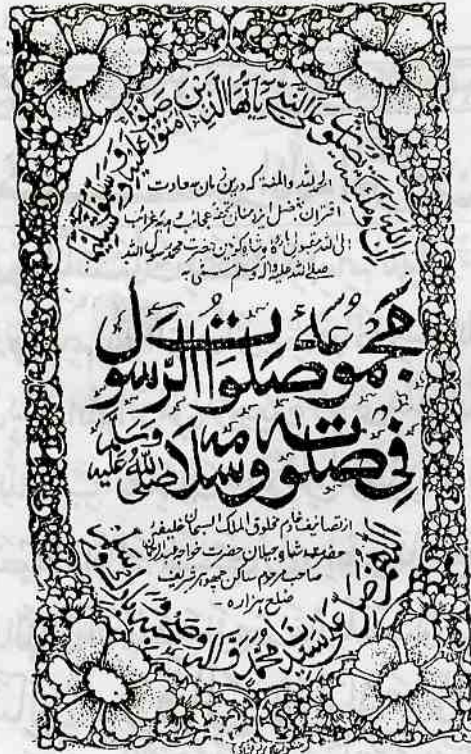 ان الله وملئكته يصلون على النبي يايها الذين امنوا صلوا عليه وسلموا تسليما
الحمد لله والمنة كه درين زمان سعادت
اقتران بفضل ايزد منان تحفه عجائب و هديه غرائب
الى الله مقبول بارگاه شاه كونين حضرت محمد رسول الله
صلى الله عليه واله وسلم مسمى به
مجموعة صلوات الرسول
في صلوته وسلامه صلى الله عليه وسلم
از تصانيف خادم مخلوق الملك السبحان خليفه
حضرت شاه جيلان حضرت خواجه عبد الرحمان
صاحب مرحوم ساكن چھوہر شريف
ضلع ہزاره -
اللهم صل على سيدنا محمد واله وصحبه وبارك وسلم